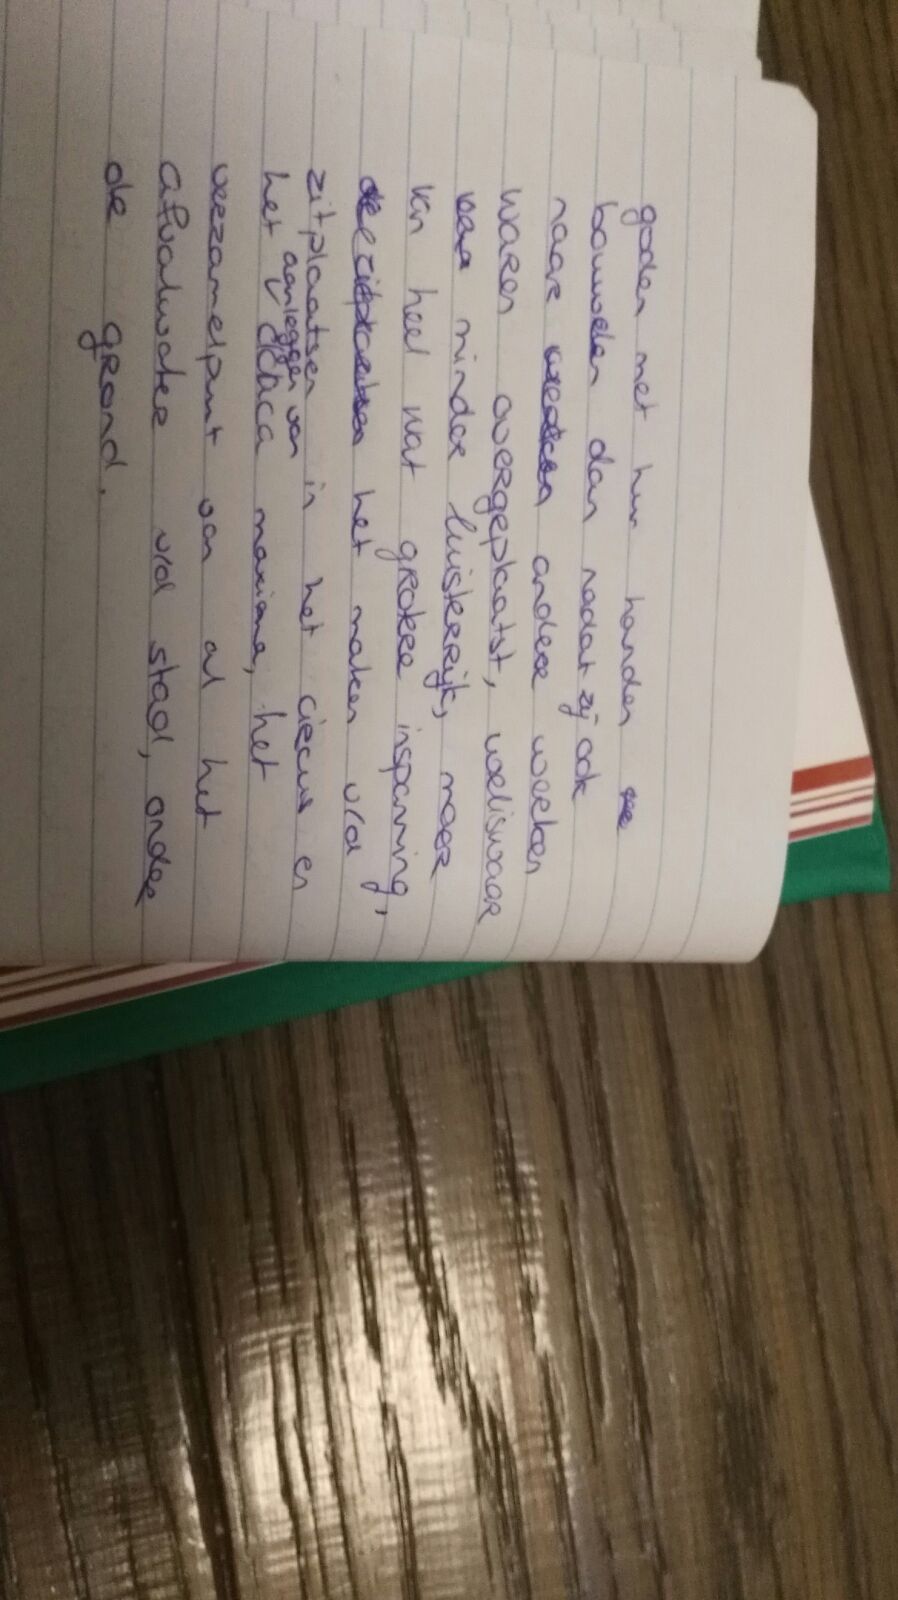 goden met hun handen
bouwden dan nadat zij ook
naar andere werken
waren overgeplaatst, weliswaar
minder luisterrijk, maar
van heel wat groter inspanning,
het maken v/d
zitplaatsen in het circus en
het aanleggen van cloaca maxima, het
verzamelpunt van al het
afvalwater v/d stad, onder
de grond.